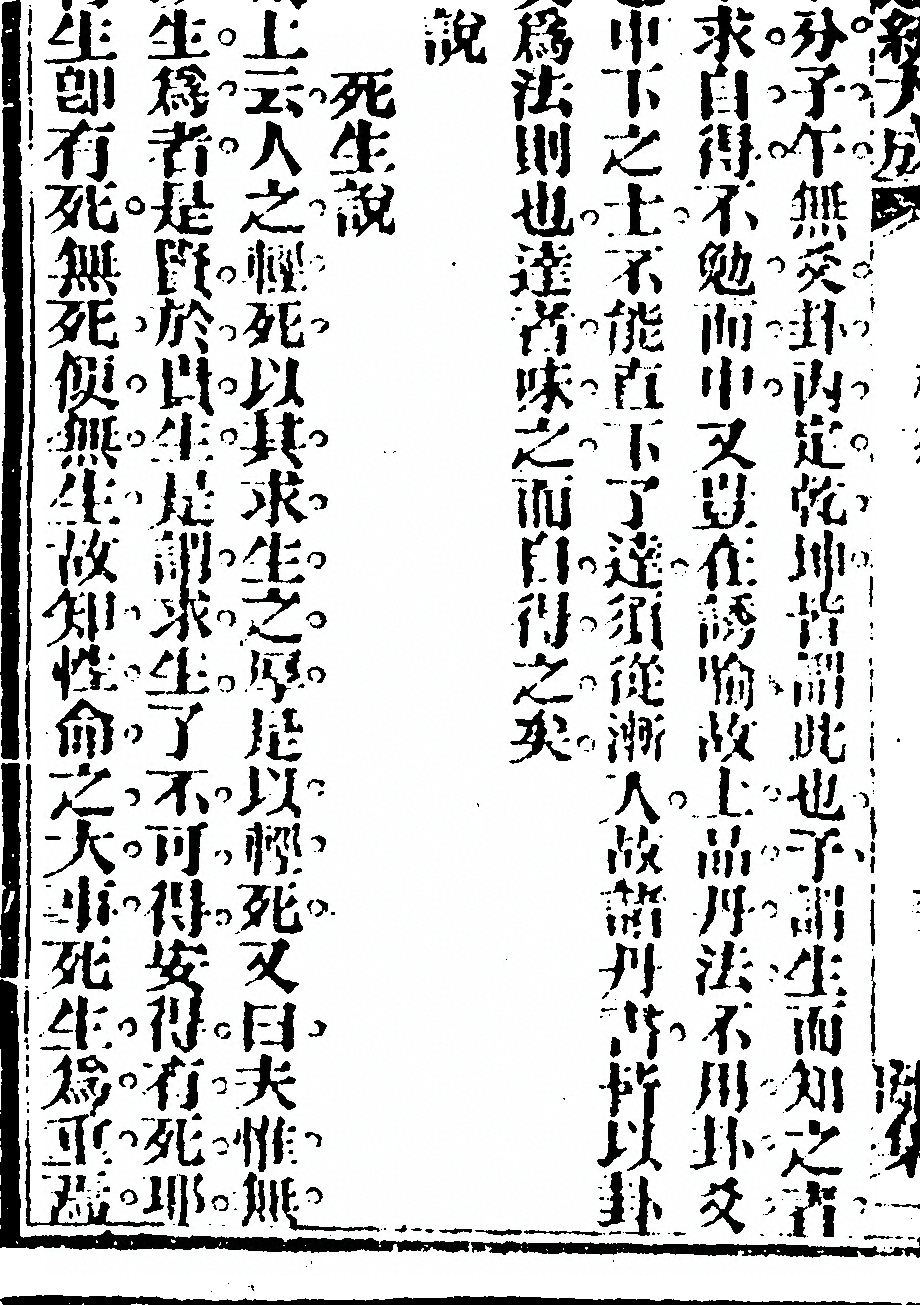 分子午無爻卦內定乾坤皆謂此也予謂生而知之者
求自得不勉而中又豈在誘喻故上品丹法不用卦爻
中下之士不能直下了達須從漸入故諸丹書皆以卦
爻爲法則也達者味之而自得之矣
說
死生說
上云人之輕死以其求生之厚是以輕死又曰夫惟無
生爲者是賢於貴生是謂求生了不可得安得有死耶
生卽有死無死便無生故知性命之大事死生爲重焉